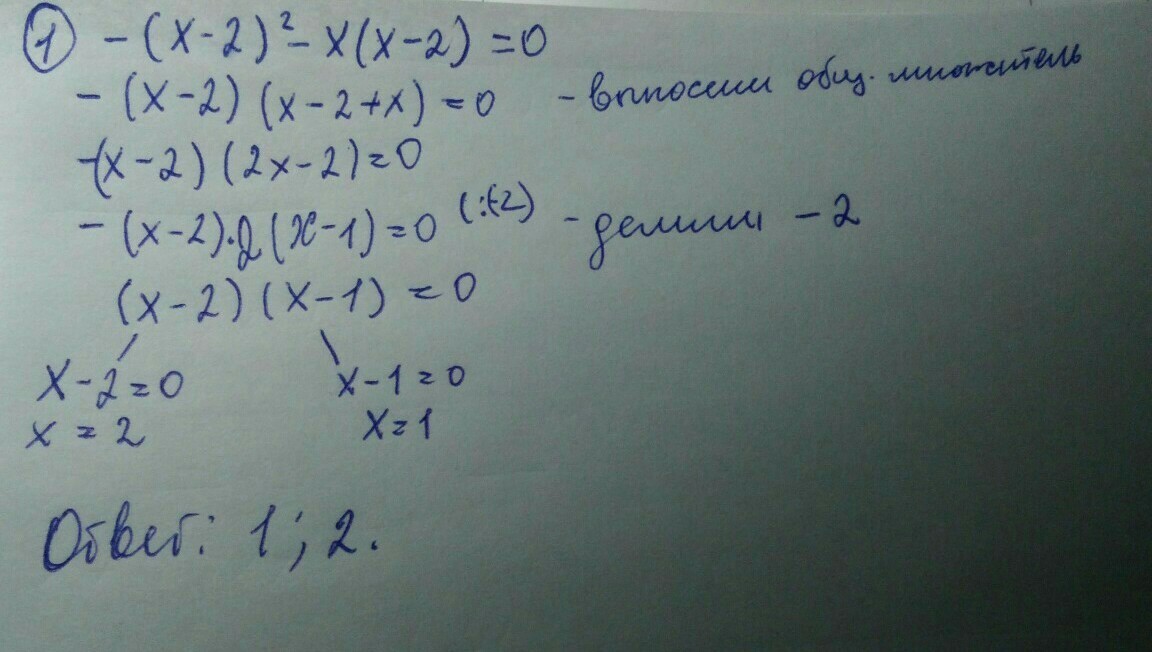 ① -(x-2)² - x(x-2) = 0
- (x-2) (x-2+x) = 0 - выносим общ. множитель
-(x-2) (2x-2) = 0
- (x-2)·2(x-1) = 0 (:(-2) - делим -2
(x-2) (x-1) = 0
x-2=0 x-1=0
x = 2 x=1
Ответ: 1; 2.